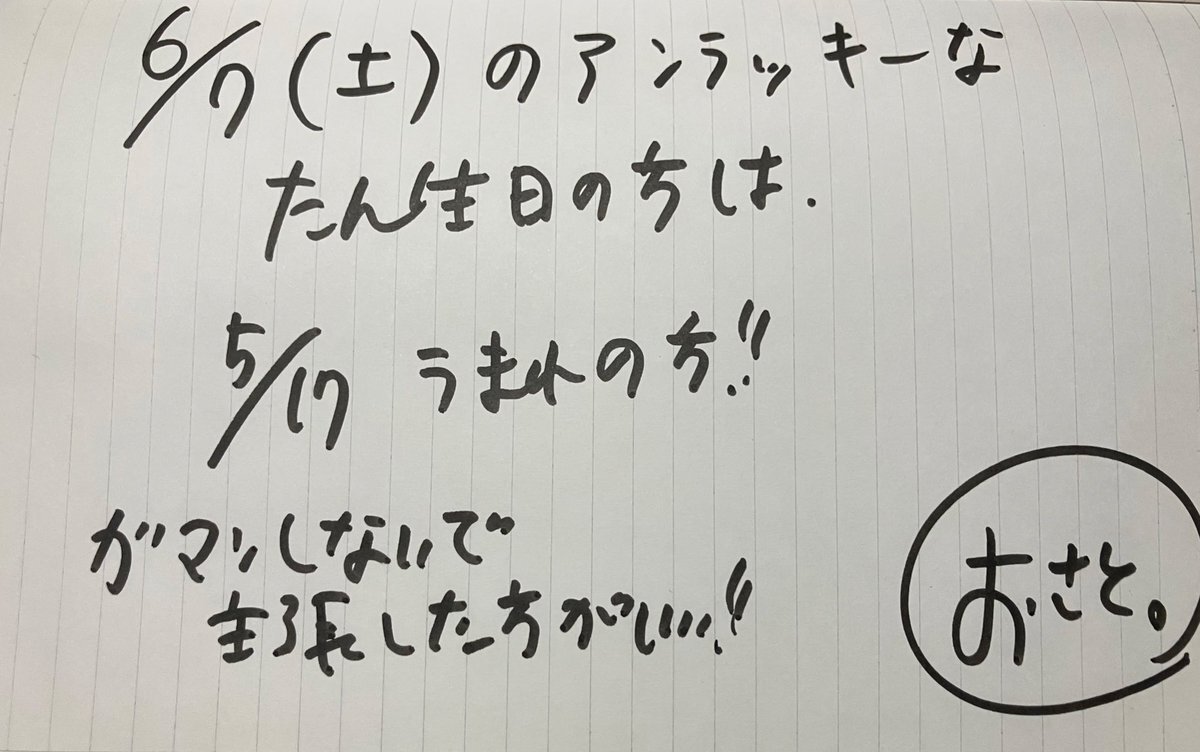 6/7(土)のアンラッキーな
たん生日の方は.
5/17 うまれの方!!
ガマンしないで
主張した方がいい!!
おさと。